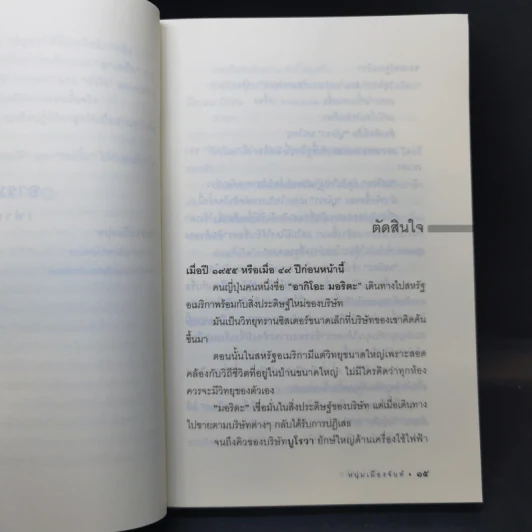 ตัดสินใจ
เมื่อปี ๑๙๕๕ หรือเมื่อ ๔๙ ปีก่อนหน้านี้
คนญี่ปุ่นคนหนึ่งชื่อ "อากิโอะ มอริตะ" เดินทางไปสหรัฐ
อเมริกาพร้อมกับสิ่งประดิษฐ์ใหม่ของบริษัท
มันเป็นวิทยุทรานซิสเตอร์ขนาดเล็กที่บริษัทของเขาคิดค้น
ขึ้นมา
ตอนนั้นในสหรัฐอเมริกามีแต่วิทยุขนาดใหญ่เพราะสอด
คล้องกับวิถีชีวิตที่อยู่ในบ้านขนาดใหญ่ ไม่มีใครคิดว่าทุกห้อง
ควรจะมีวิทยุของตัวเอง
"มอริตะ" เชื่อมั่นในสิ่งประดิษฐ์ของบริษัท แต่เมื่อเดินทาง
ไปขายตามบริษัทต่างๆ กลับได้รับการปฏิเสธ
จนถึงคิวของบริษัทบูโรวา ยักษ์ใหญ่ด้านเครื่องใช้ไฟฟ้า
หนุ่มเมืองจันท์ • ๑๕